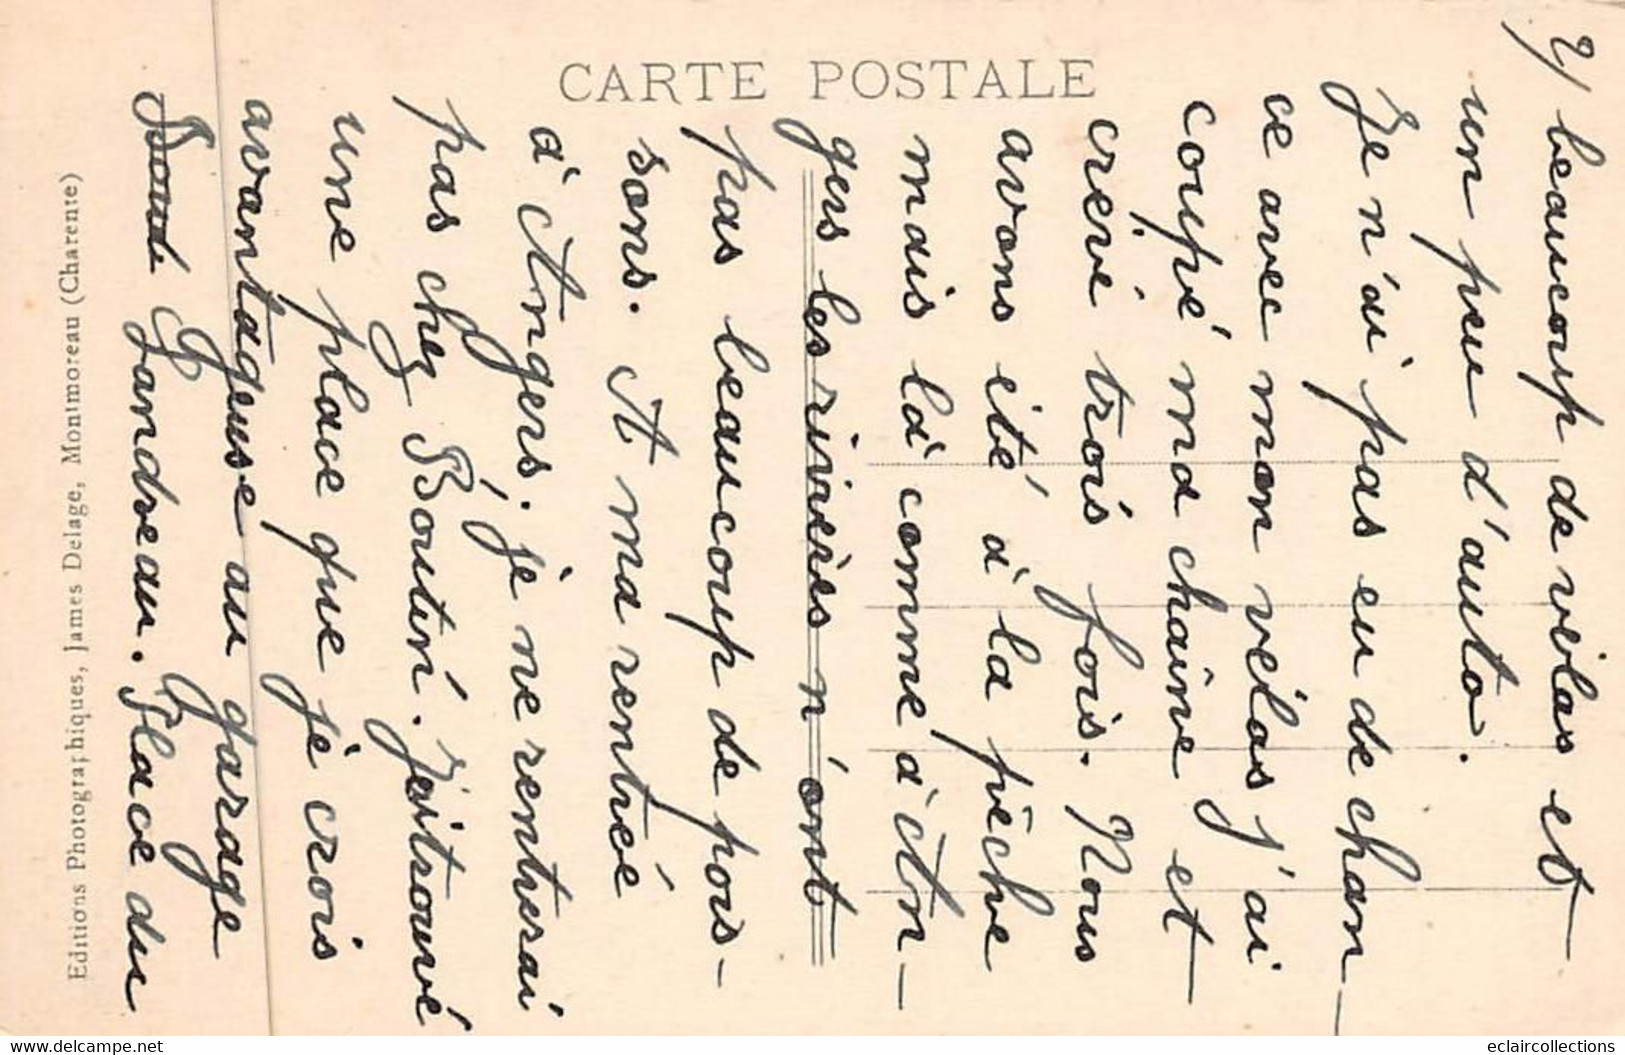 CARTE POSTALE
2/
beaucoup de vélos et
un peu d'auto.
Je n'ai pas eu de chan-
ce avec mon vélos j'ai
coupé ma chaîne et
crévé trois fois. Nous
avons été à la pêche
mais là comme à An-
gers les rivières n'ont
pas beaucoup de pois-
sons. A ma rentrée
d'Angers. je ne rentrerai
pas chez Boutin. J'ai trouvé
une place que je crois
avantageuse au garage
Gandreau. Place du
Editions Photographiques, James Delage, Montmoreau (Charente)
www.delcampe.net
eclaircollections